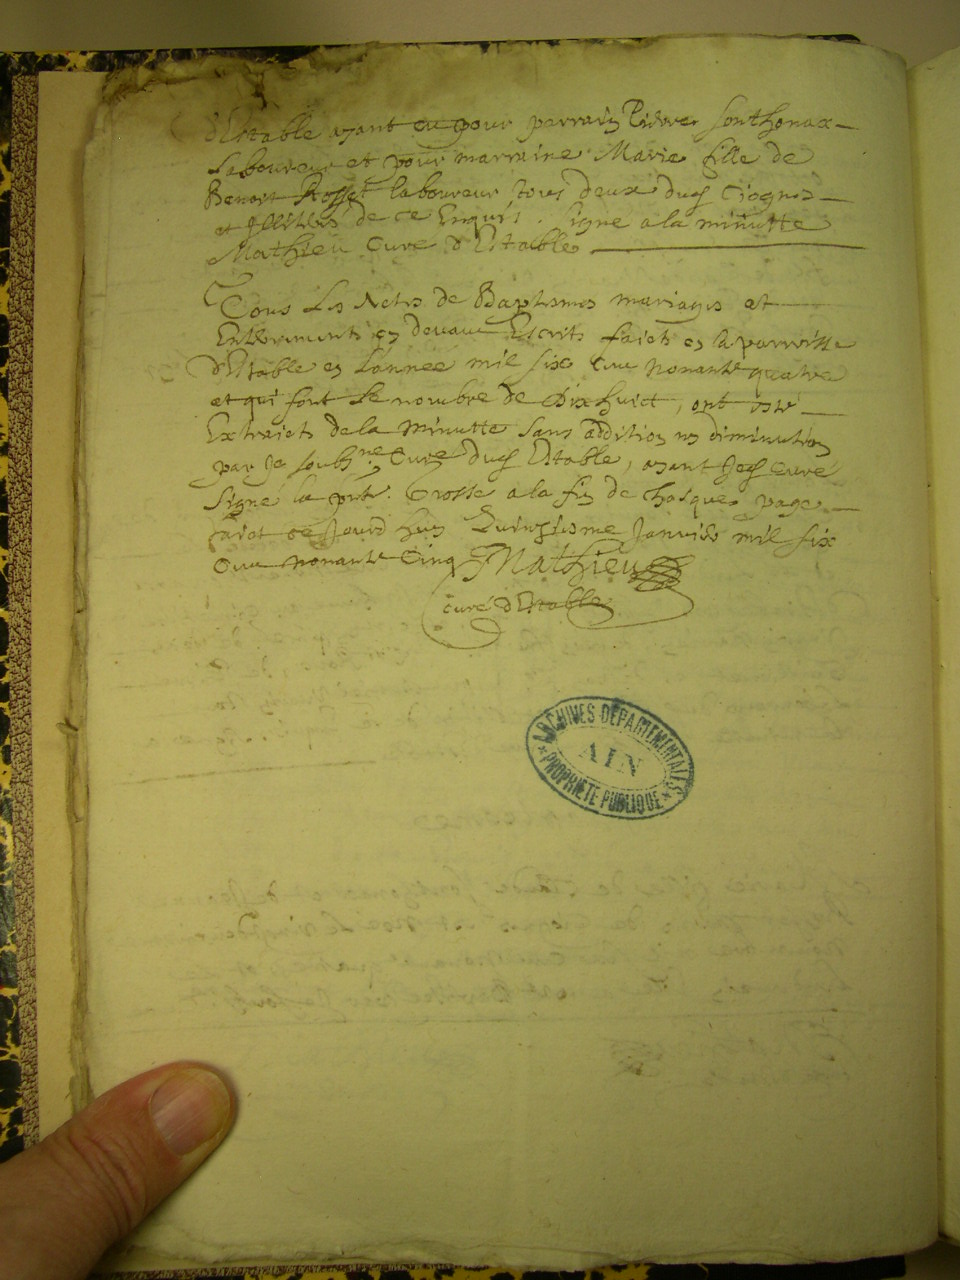 d'Estable ayant eu pour parrain Pierre Sonthonax
laboureur et pour marraine Marie fille de
Benoit Rosset laboureur tous deux dud Ciognos
et Illitérés de ce Enquis. signe a la minutte
Mathieu Curé d'Estable
Tous Les Actes de Baptesmes mariages et
Enterrements cy devant Escrits faicts en la parroisse
d'Estable en L'année mil six Cent Nonante quatre
et qui sont Le nombre de Dixhuict, ont esté
Extraicts de la Minutte sans addition ny diminution
par Je soubsné Curé dud Estable, ayant Led Curé
signé la pnte Grosse a la fin de chasque page
faict ce Jourd'huy Janvier mil six
Cent nonante Cinq Mathieu
curé d'Estable
ARCHIVES DÉPARTEMENTALES
AIN
PROPRIÉTÉ PUBLIQUE